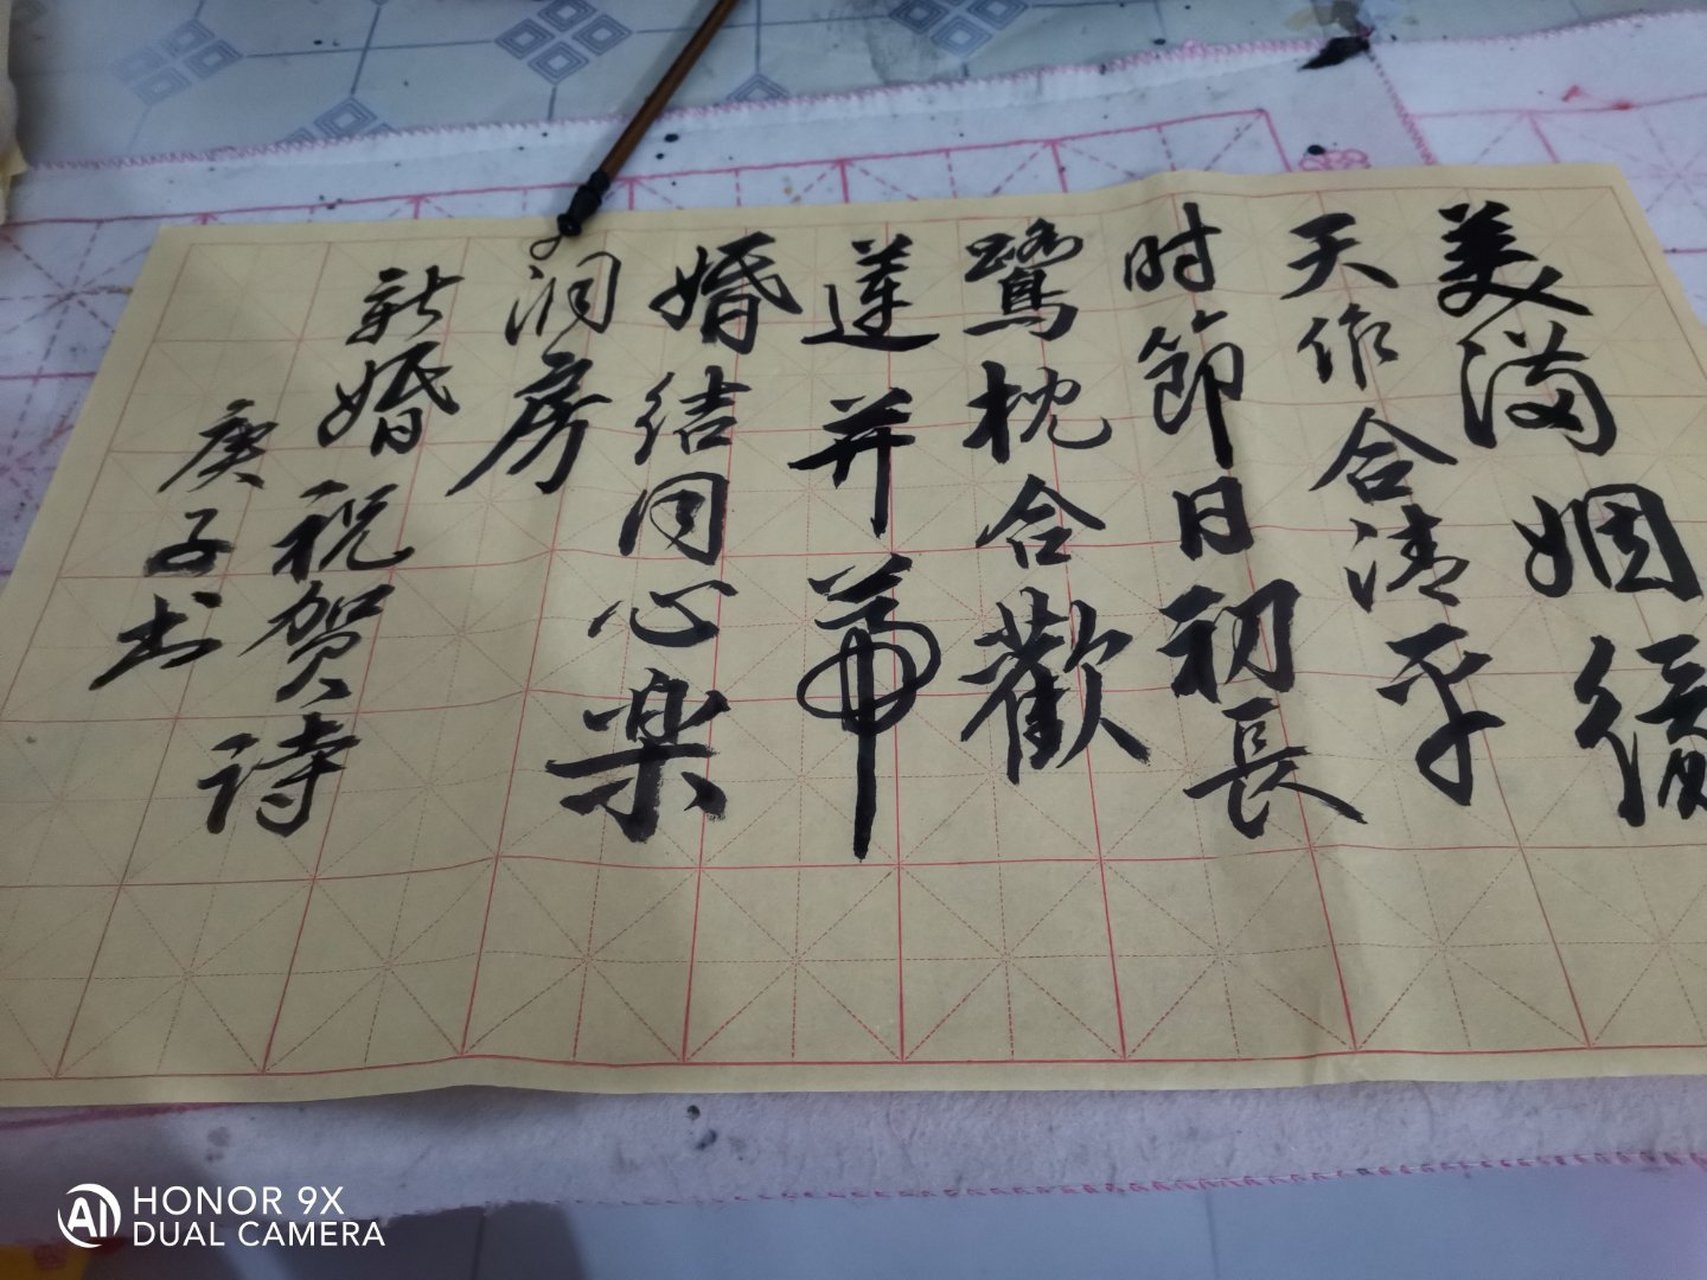 美满姻缘
天作合清平
时節日初長
鸞枕合歡
莲并蒂
婚结同心樂
洞房
新婚祝贺诗
庚子书
HONOR 9X
DUAL CAMERA